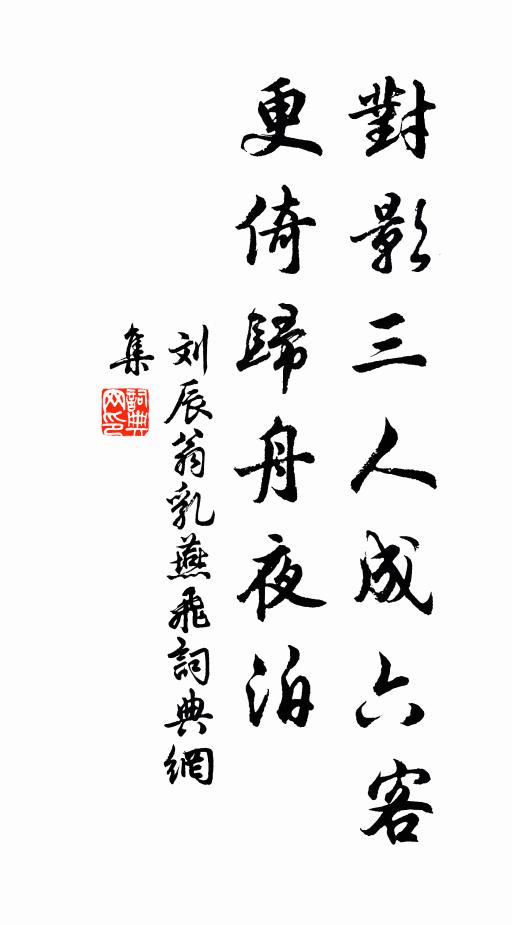 對影三人成六客
更倚歸舟夜泊
刘辰翁乳燕飛詞典網
集
詞典
网印